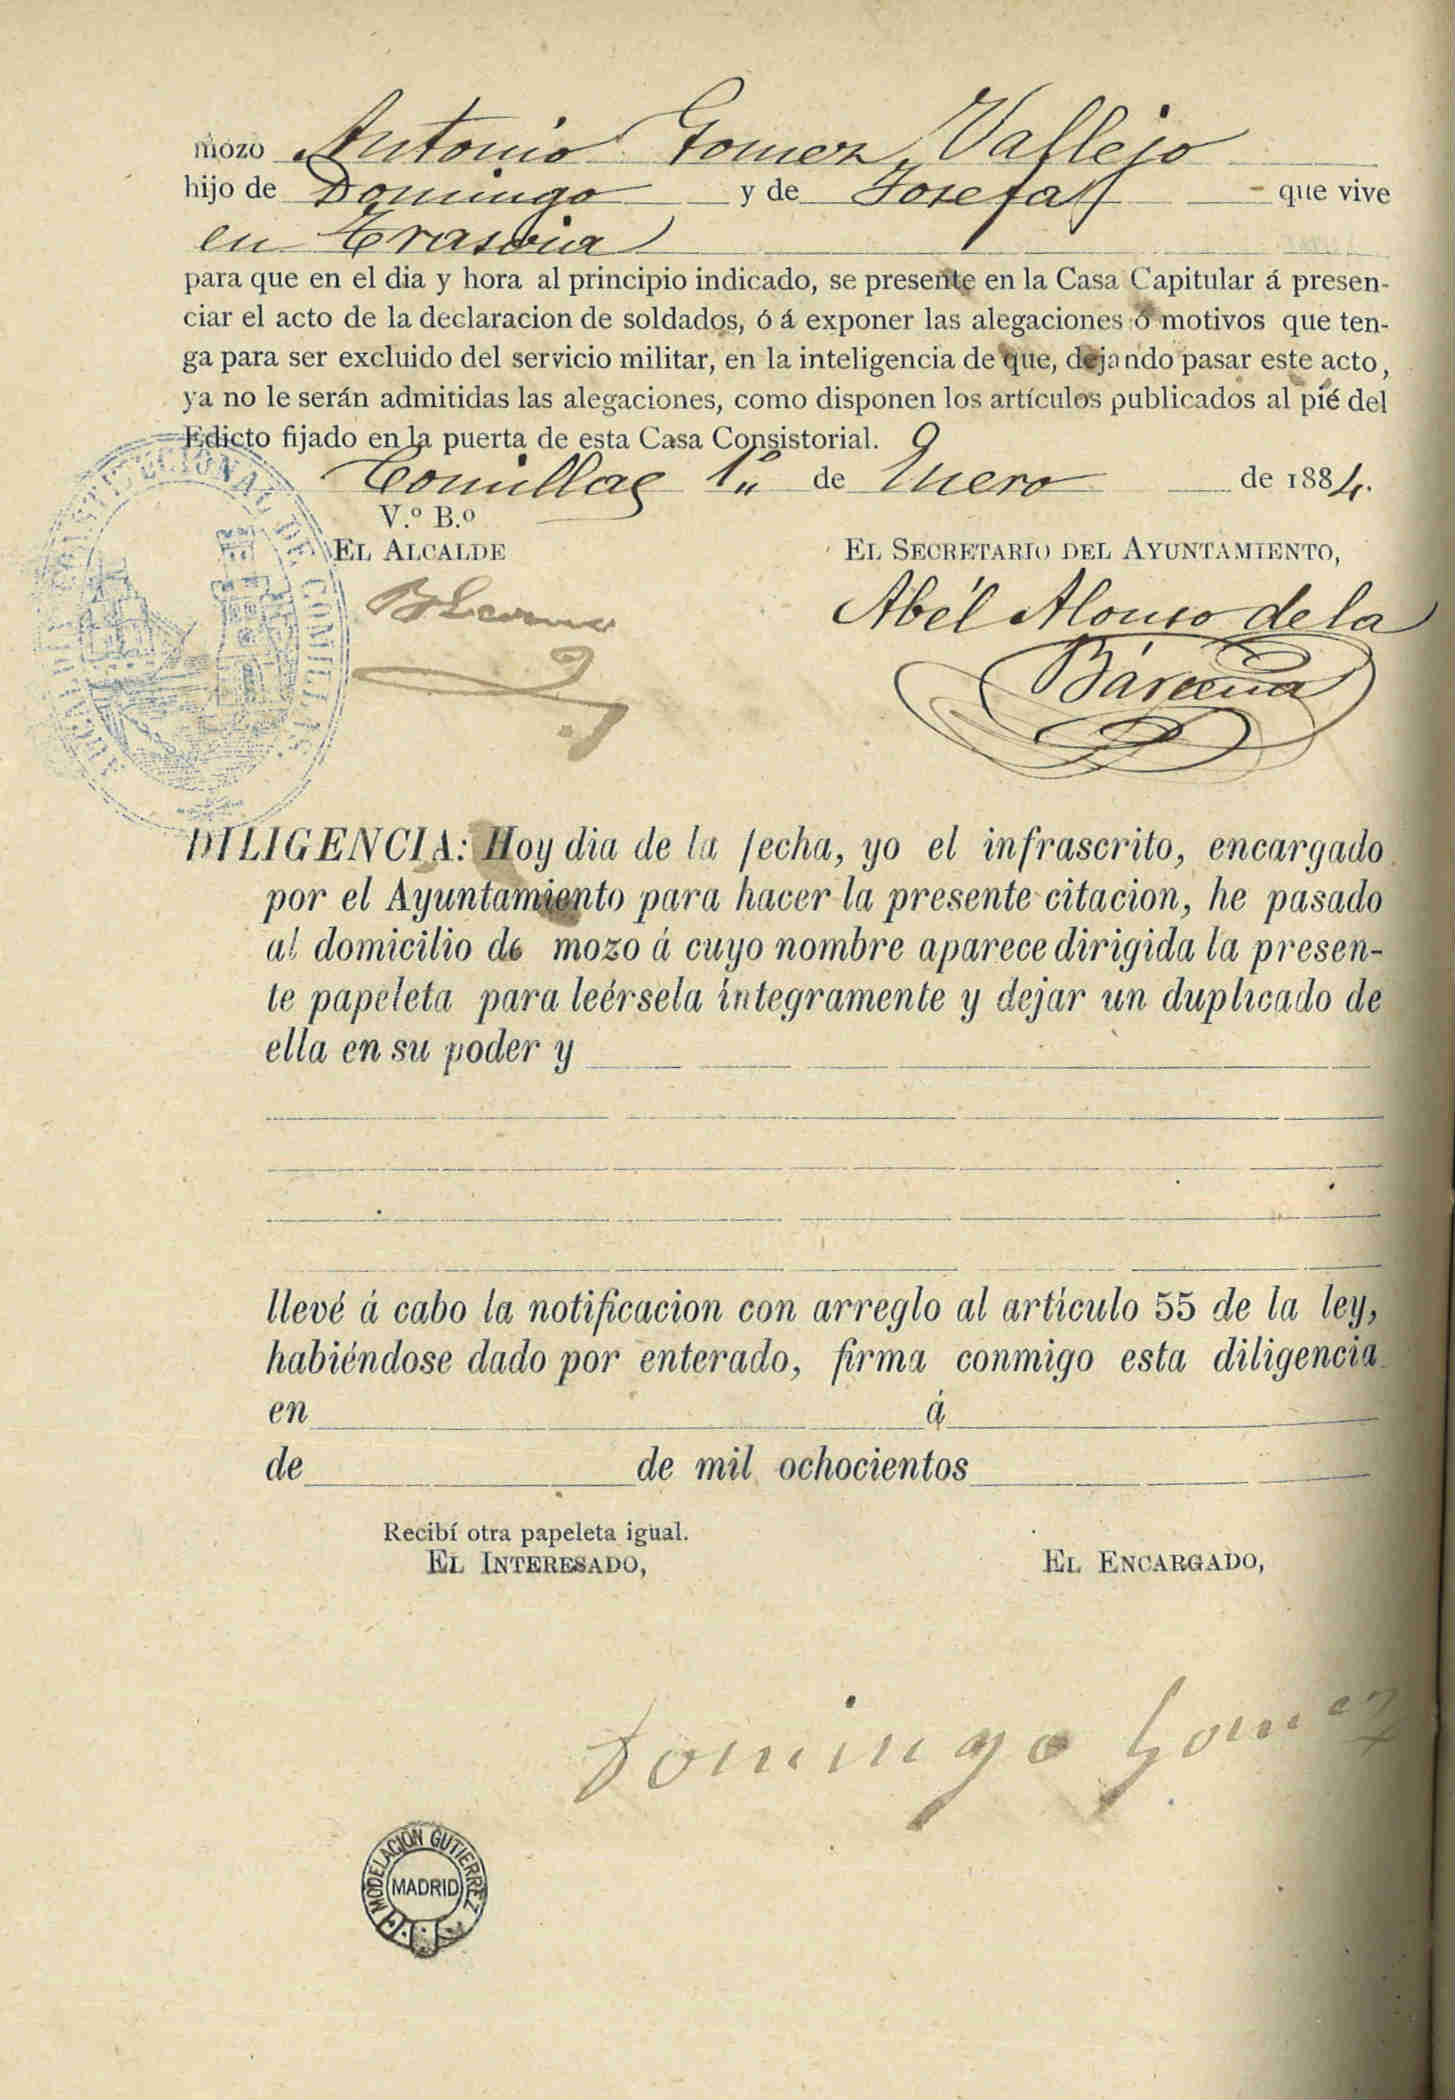 mozo Antonio Gomez Vallejo
hijo de Domingo y de Josefa que vive
en Trasvia
para que en el dia y hora al principio indicado, se presente en la Casa Capitular á presen-
ciar el acto de la declaracion de soldados, ó á exponer las alegaciones ó motivos que ten-
ga para ser excluido del servicio militar, en la inteligencia de que, dejando pasar este acto,
ya no le serán admitidas las alegaciones, como disponen los artículos publicados al pié del
Edicto fijado en la puerta de esta Casa Consistorial.
Comillas 1.º de Enero de 1884.
V.º B.º
EL ALCALDE
EL SECRETARIO DEL AYUNTAMIENTO,
Abél Alonso de la
Bárcena
CONSTITUCIONAL DE COMILLAS
DILIGENCIA: Hoy dia de la fecha, yo el infrascrito, encargado
por el Ayuntamiento para hacer la presente citacion, he pasado
al domicilio de mozo á cuyo nombre aparece dirigida la presen-
te papeleta para leérsela íntegramente y dejar un duplicado de
ella en su poder y
llevé á cabo la notificacion con arreglo al artículo 55 de la ley,
habiéndose dado por enterado, firma conmigo esta diligencia
en á
de de mil ochocientos
Recibí otra papeleta igual.
EL INTERESADO,
EL ENCARGADO,
Domingo Gomez
MODELACION GUTIERREZ
MADRID